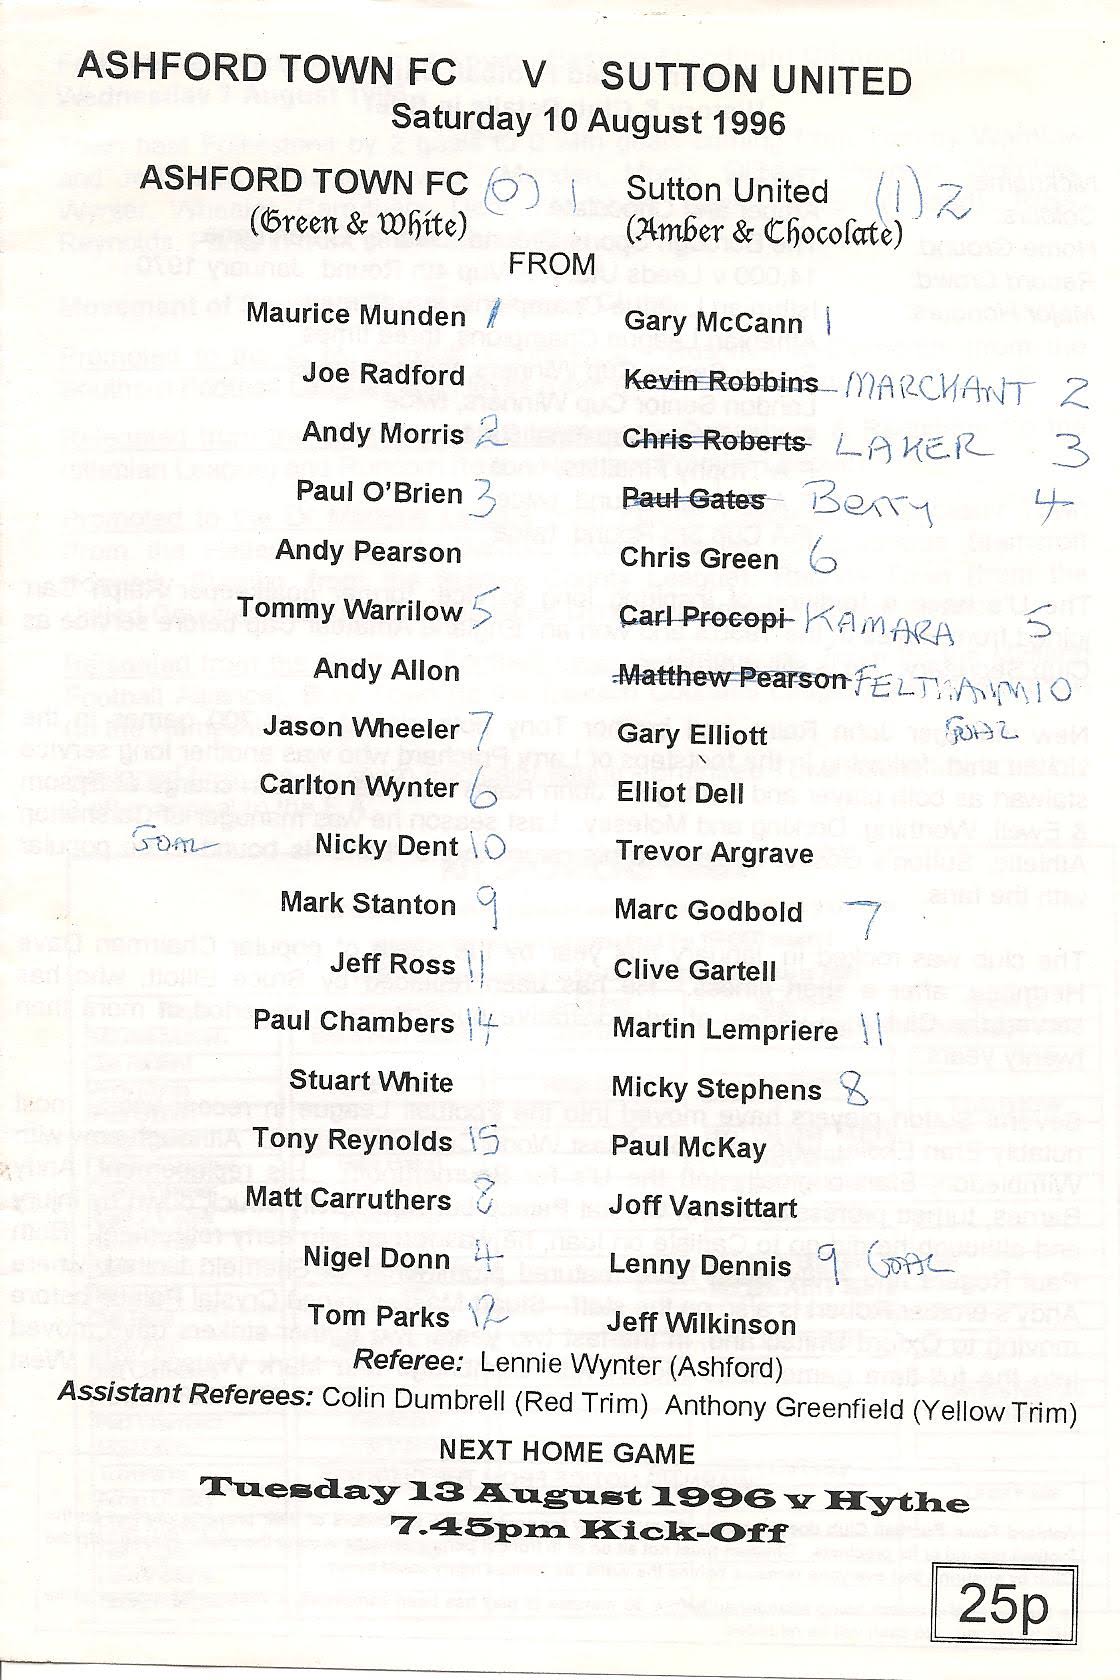 ASHFORD TOWN FC V SUTTON UNITED
Saturday 10 August 1996
ASHFORD TOWN FC (0) 1 Sutton United (1) 2
(Green & White) (Amber & Chocolate)
FROM
Maurice Munden 1 Gary McCann 1
Joe Radford Kevin Robbins MARCHANT 2
Andy Morris 2 Chris Roberts LAKER 3
Paul O'Brien 3 Paul Gates Berry 4
Andy Pearson Chris Green 6
Tommy Warrilow 5 Carl Procopi KAMARA 5
Andy Allon Matthew Pearson FELTHAM 10
Jason Wheeler 7 Gary Elliott GOAL
Carlton Wynter 6 Elliot Dell
GOAL Nicky Dent 10 Trevor Argrave
Mark Stanton 9 Marc Godbold 7
Jeff Ross 11 Clive Gartell
Paul Chambers 14 Martin Lempriere 11
Stuart White Micky Stephens 8
Tony Reynolds 15 Paul McKay
Matt Carruthers 8 Joff Vansittart
Nigel Donn 4 Lenny Dennis 9 GOAL
Tom Parks 12 Jeff Wilkinson
Referee: Lennie Wynter (Ashford)
Assistant Referees: Colin Dumbrell (Red Trim) Anthony Greenfield (Yellow Trim)
NEXT HOME GAME
Tuesday 13 August 1996 v Hythe
7.45pm Kick-Off
25p